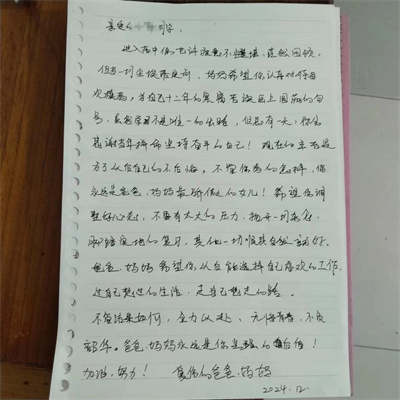 亲爱的
进入高中你也许疲惫不堪
但当一到金榜题名时,妈妈希望你认真对待每
次模高,为自己十二年的寒窗苦读画上圆满的句
号,虽然学习不是唯一的出路,但总有一天,你会
感谢当年拼命坚持奋斗的自己!现在的辛苦是
为了以后自己的不后悔,不管你考的怎样,你
永远是爸爸、妈妈最骄傲的女儿!希望你调
整好心态,不要有太大的压力,抛开一切杂念,
脚踏实地的复习,其他一切顺其自然就好。
爸爸、妈妈希望你以后能选择自己喜欢的工作,
过自己想过的生活,走自己想走的路。
不管结果如何,全力以赴、无悔青春,不负
韶华。爸爸、妈妈永远是你坚强的后盾!
加油,努力! 爱你的爸爸、妈妈
2024.12.